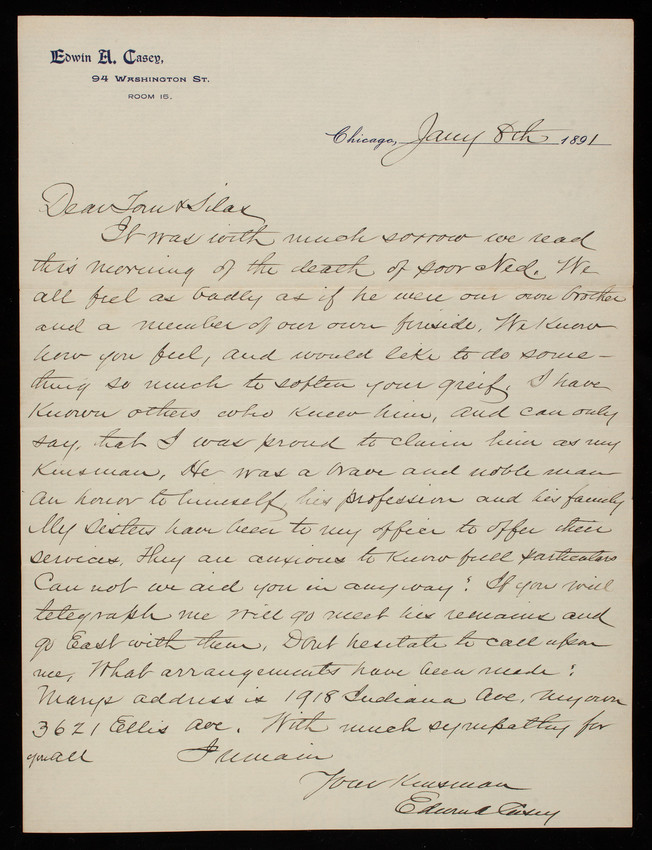 Edwin A. Casey,
94 Washington St.
Room 15.
Chicago, Jany 8th 1891
Dear Tom & Silas
It was with much sorrow we read
this morning of the death of poor Ned. We
all feel as badly as if he were our own brother
and a member of our own fireside. We know
how you feel, and would like to do some-
thing so much to soften your greif. I have
known others who knew him, and can only
say, that I was proud to claim him as my
Kinsman. He was a brave and noble man
an honor to himself, his profession and his family
My sisters have been to my office to offer their
services. They are anxious to know full particulars
Can not we aid you in anyway? If you will
telegraph me will go meet his remains and
go East with them. Dont hesitate to call upon
me. What arrangements have been made?
Marys address is 1918 Indiana Ave. my own
3621 Ellis Ave. With much sympathy for
you all I remain
Your Kinsman
Edwin A Casey